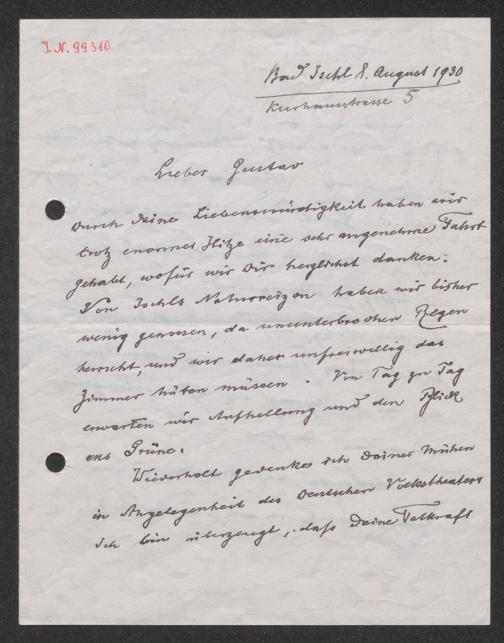 I.N. 99310
Bad Ischl 8. August 1930
Kurhausstrasse 5
Lieber Gustav
Durch Deine Liebenswürdigkeit haben wir
trotz enormer Hitze eine sehr angenehme Fahrt
gehabt, wofür wir Dir herzlichst danken.
Von Ischls Naturreizen haben wir bisher
wenig genossen, da ununterbrochen Regen
herrscht, und wir daher unfreiwillig das
Zimmer hüten müssen. Von Tag zu Tag
erwarten wir Aufhellung und den Blick
ins Grüne.
Wiederholt gedenke ich Deiner Mühen
in Angelegenheit des Deutschen Volkstheaters
Ich bin überzeugt, dass Deine Tatkraft